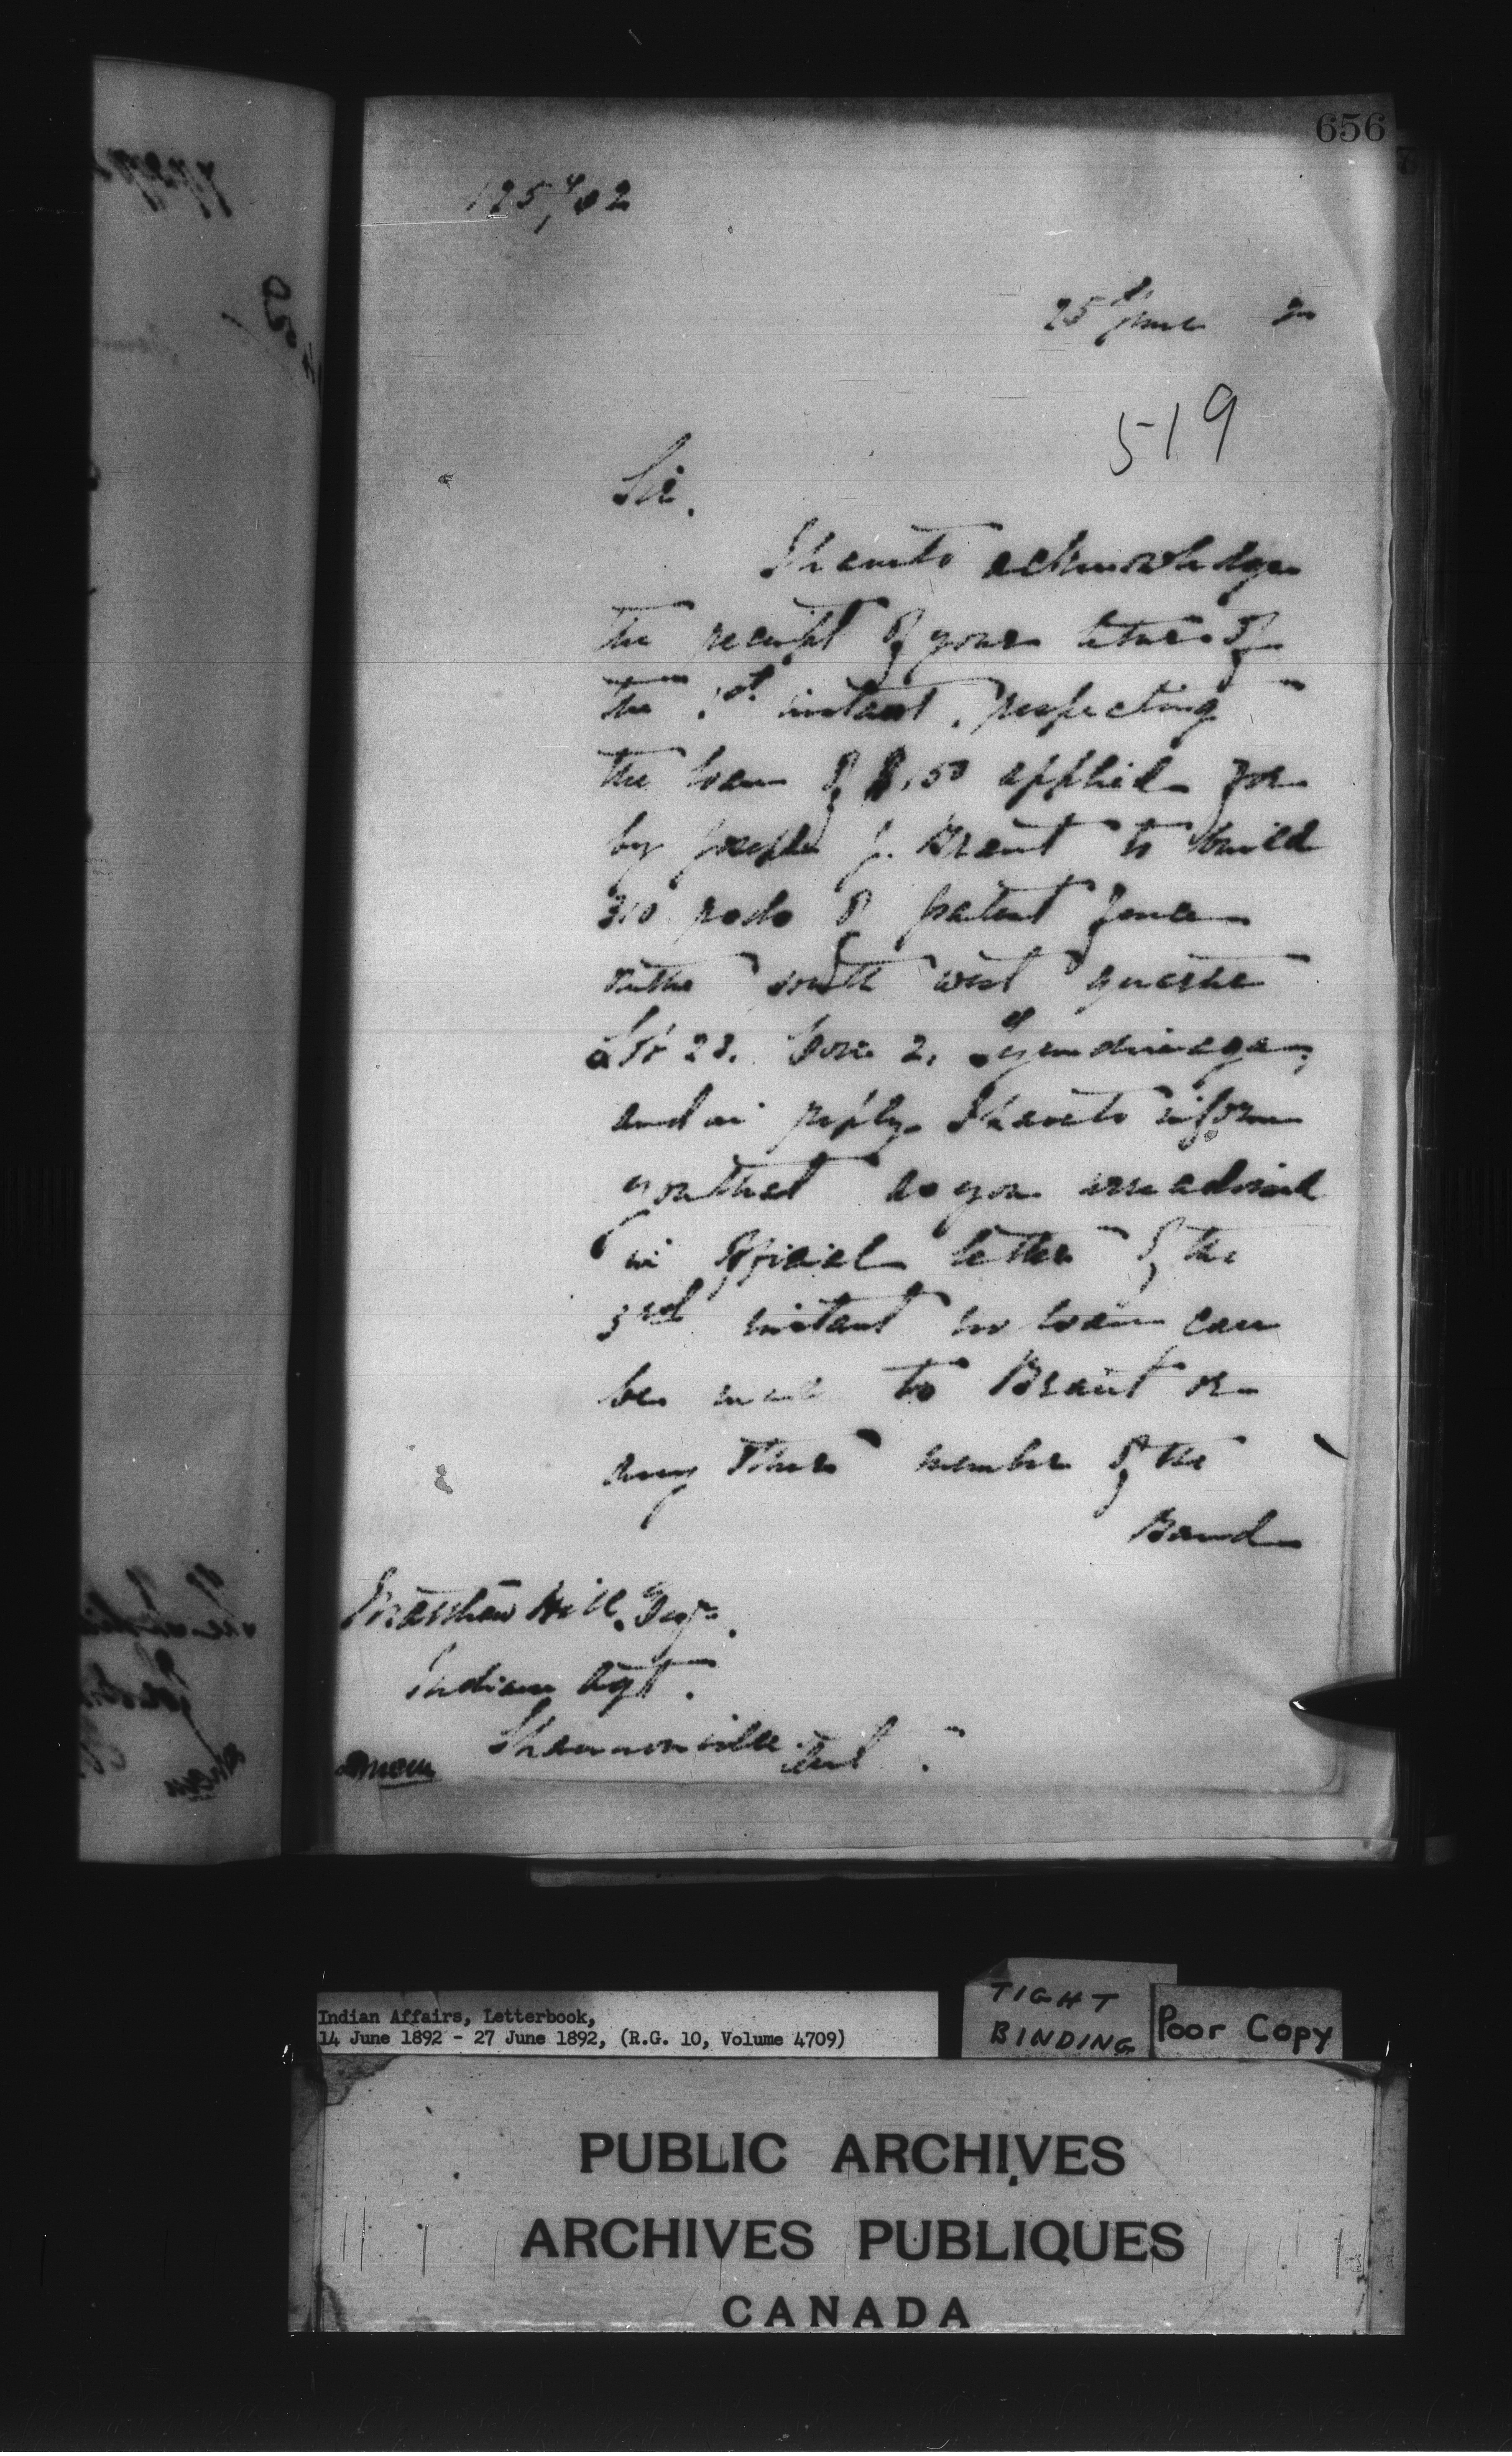 656
125,402
25 June 92
519
Sir,
I have to acknowledge
the receipt of your letter of
the 1st instant, respecting
the loan of $150 applied for
by Joseph J. Brant to build
310 rods of patent fence
on the south west quarter
Lot 23. Con 2. Tyendinaga,
and in reply I have to inform
you that as you were advised
in official letter of the
3rd instant no loan can
be made to Brant or
any other member of the
Band
Matthew Hill, Esqr.
Indian Agt.
Shannonville
Ont.
Indian Affairs, Letterbook,
14 June 1892 - 27 June 1892, (R.G. 10, Volume 4709)
TIGHT
BINDING
Poor Copy
PUBLIC ARCHIVES
ARCHIVES PUBLIQUES
CANADA